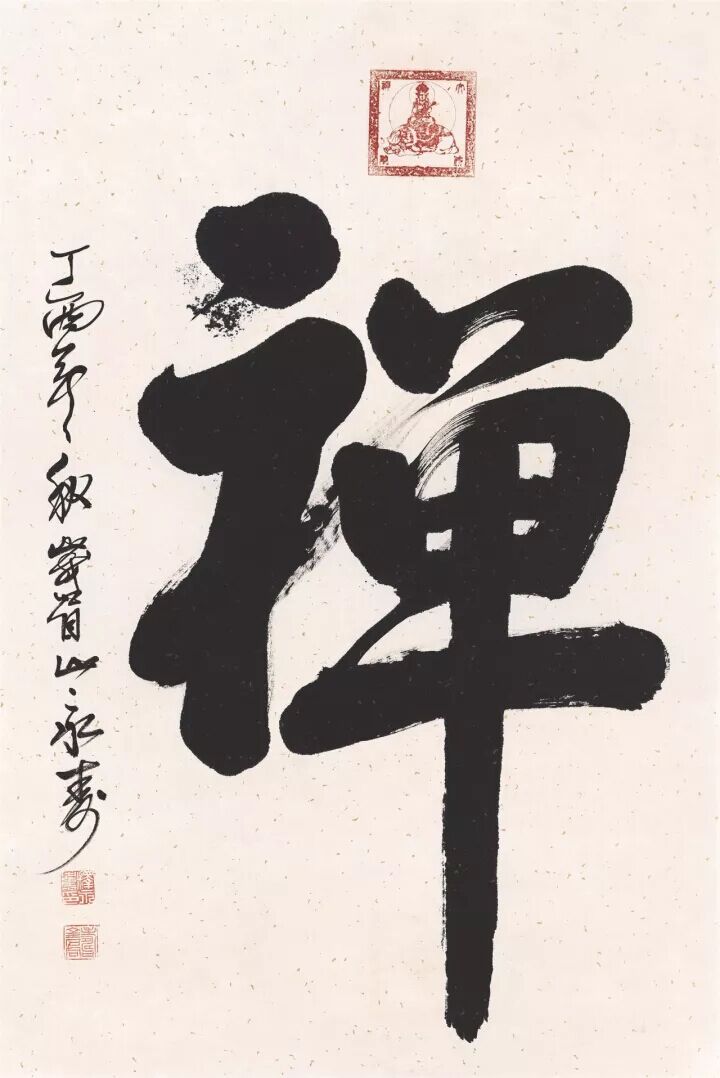 禅
丁酉年秋峨眉山永寿